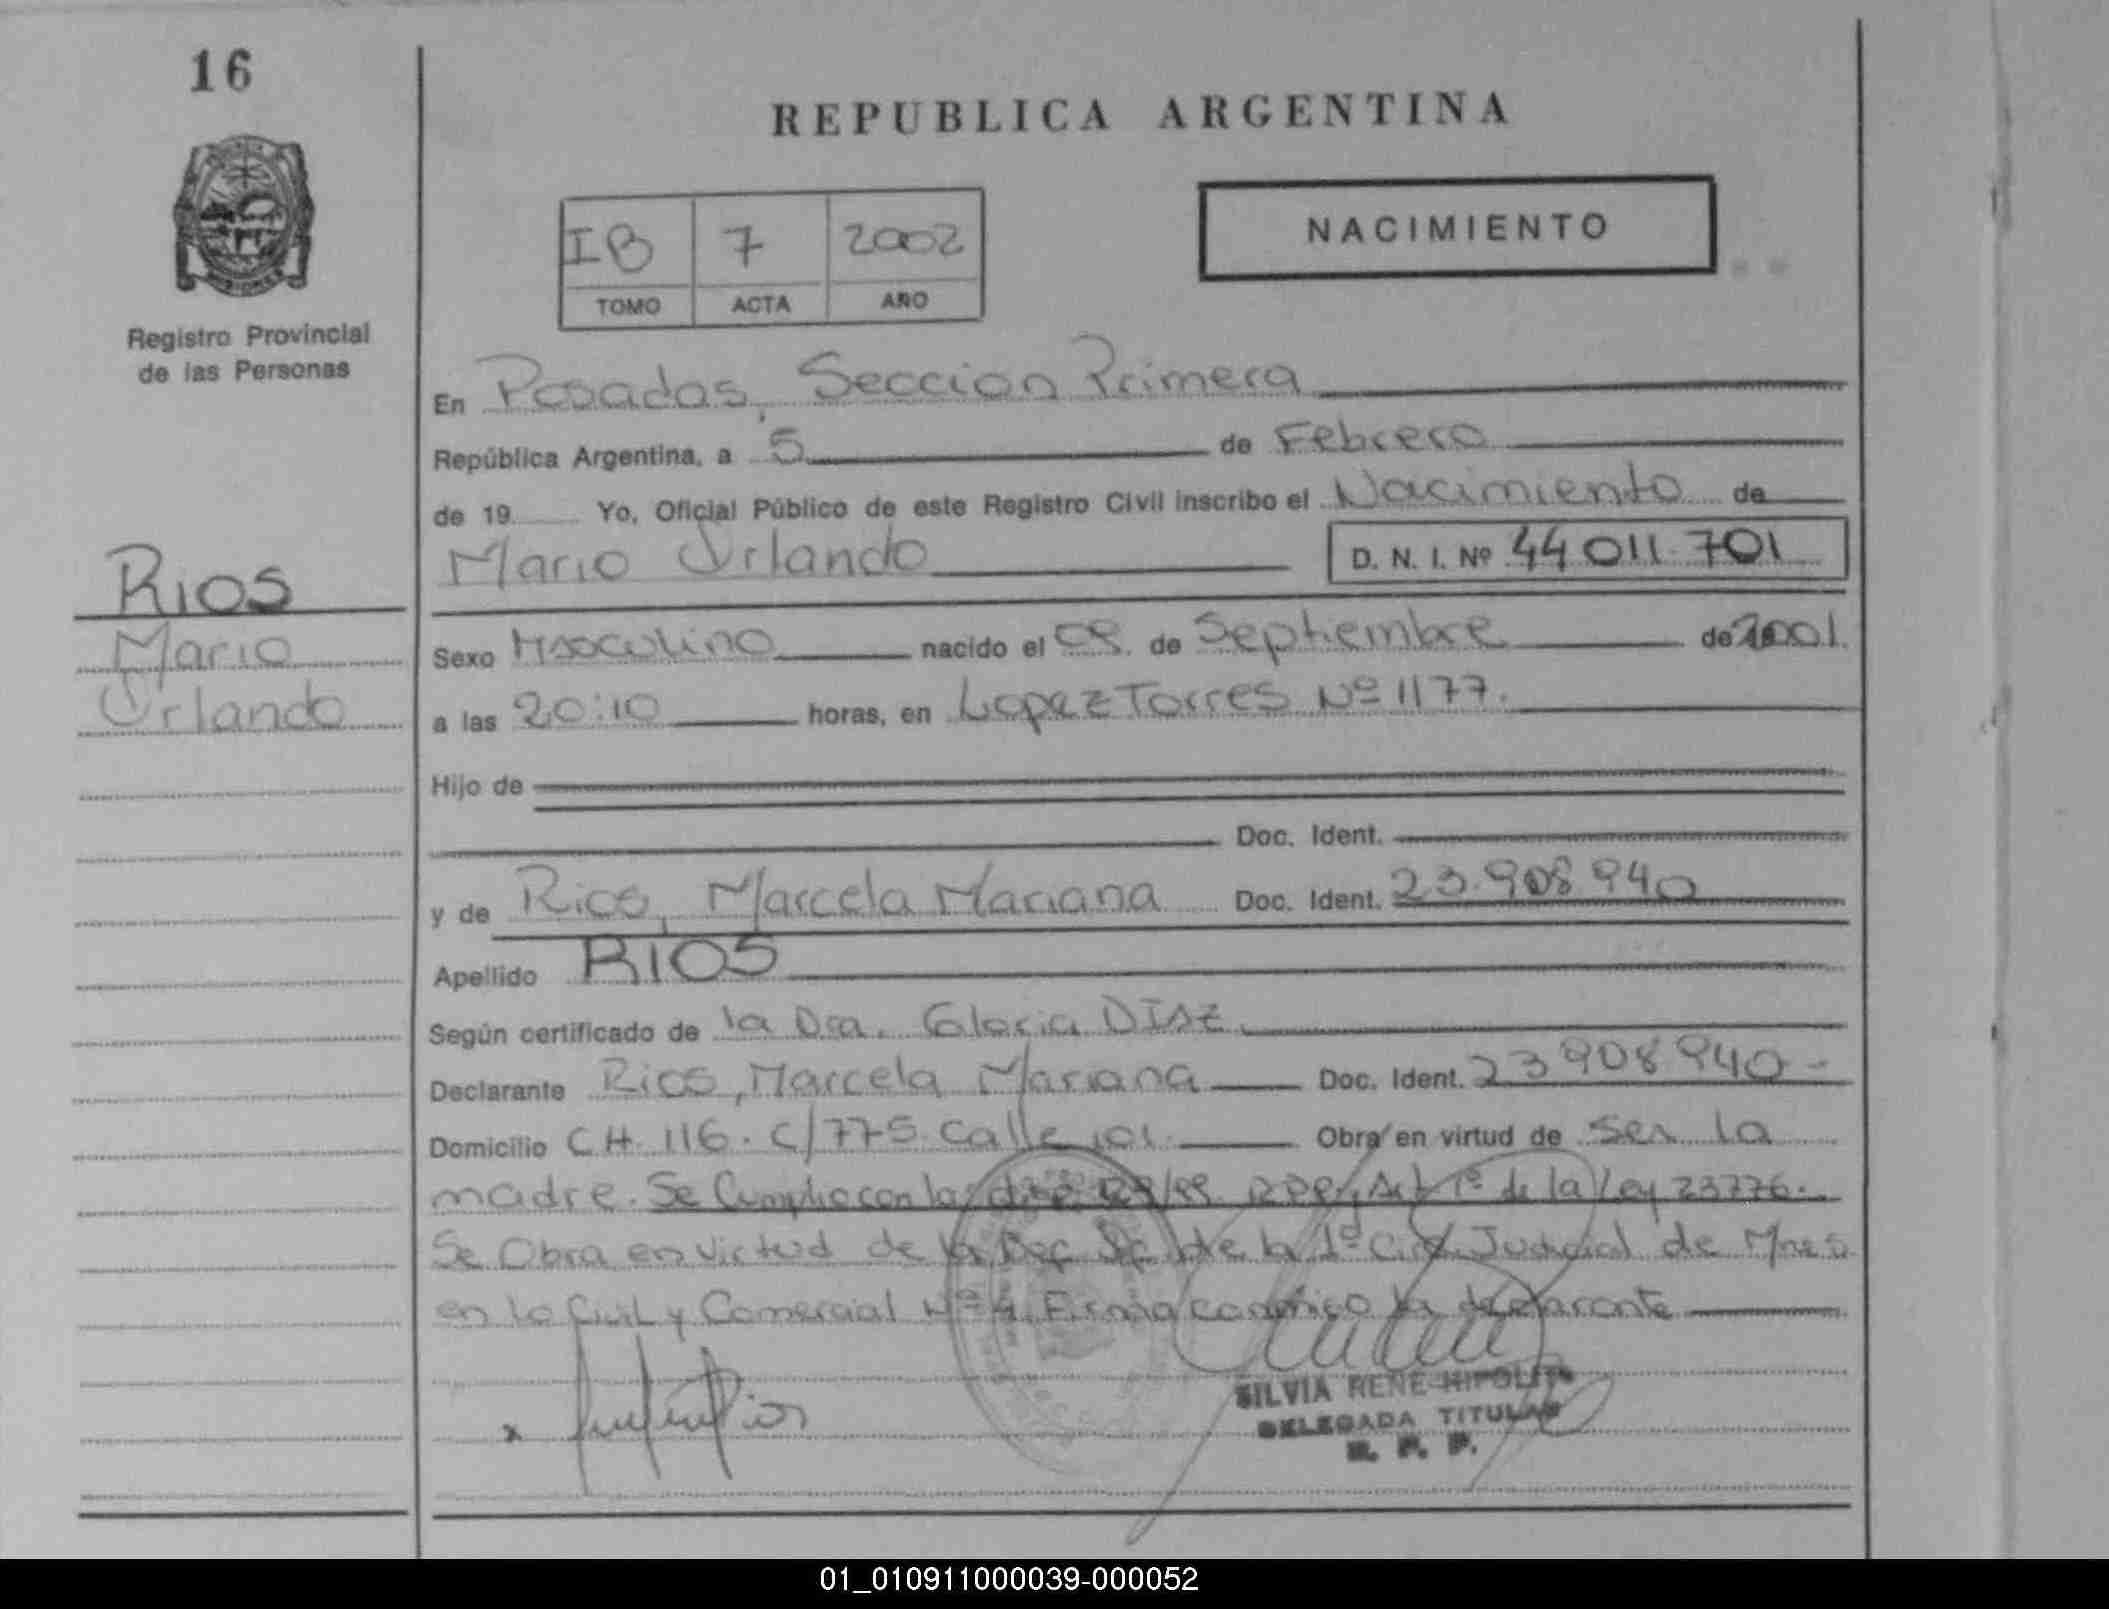 16
REPUBLICA ARGENTINA
NACIMIENTO
IB 7 2002
TOMO ACTA AÑO
Registro Provincial
de las Personas
En Posadas, Seccion Primera
República Argentina, a 5 de Febrero
de 19 Yo, Oficial Público de este Registro Civil inscribo el Nacimiento de
Mario Orlando D. N. I. Nº 44 011.701
RIOS
Mario
Orlando
Sexo Masculino nacido el 08 de Septiembre de 2001.
a las 20:10 horas, en Lopez Torres Nº 1177.
Hijo de
Doc. Ident.
y de Rios, Marcela Mariana Doc. Ident. 23.908 940
Apellido RIOS
Según certificado de la Dra. Gloria DIAZ
Declarante Rios, Marcela Mariana Doc. Ident. 23 908 940-
Domicilio CH. 116. C/775. Calle 101. Obra en virtud de Ser la
madre. Se Cumplio con la /99 Art 1º de la Ley 23776.
Se Obra en Virtud de la de la 1º Judicial de Mnes
en lo Civil y Comercial Nº 4. Firma conmigo la declarante
x Rios
SILVIA RENE HIPOLITO
DELEGADA TITULAR
R. P. P.
01_010911000039-000052